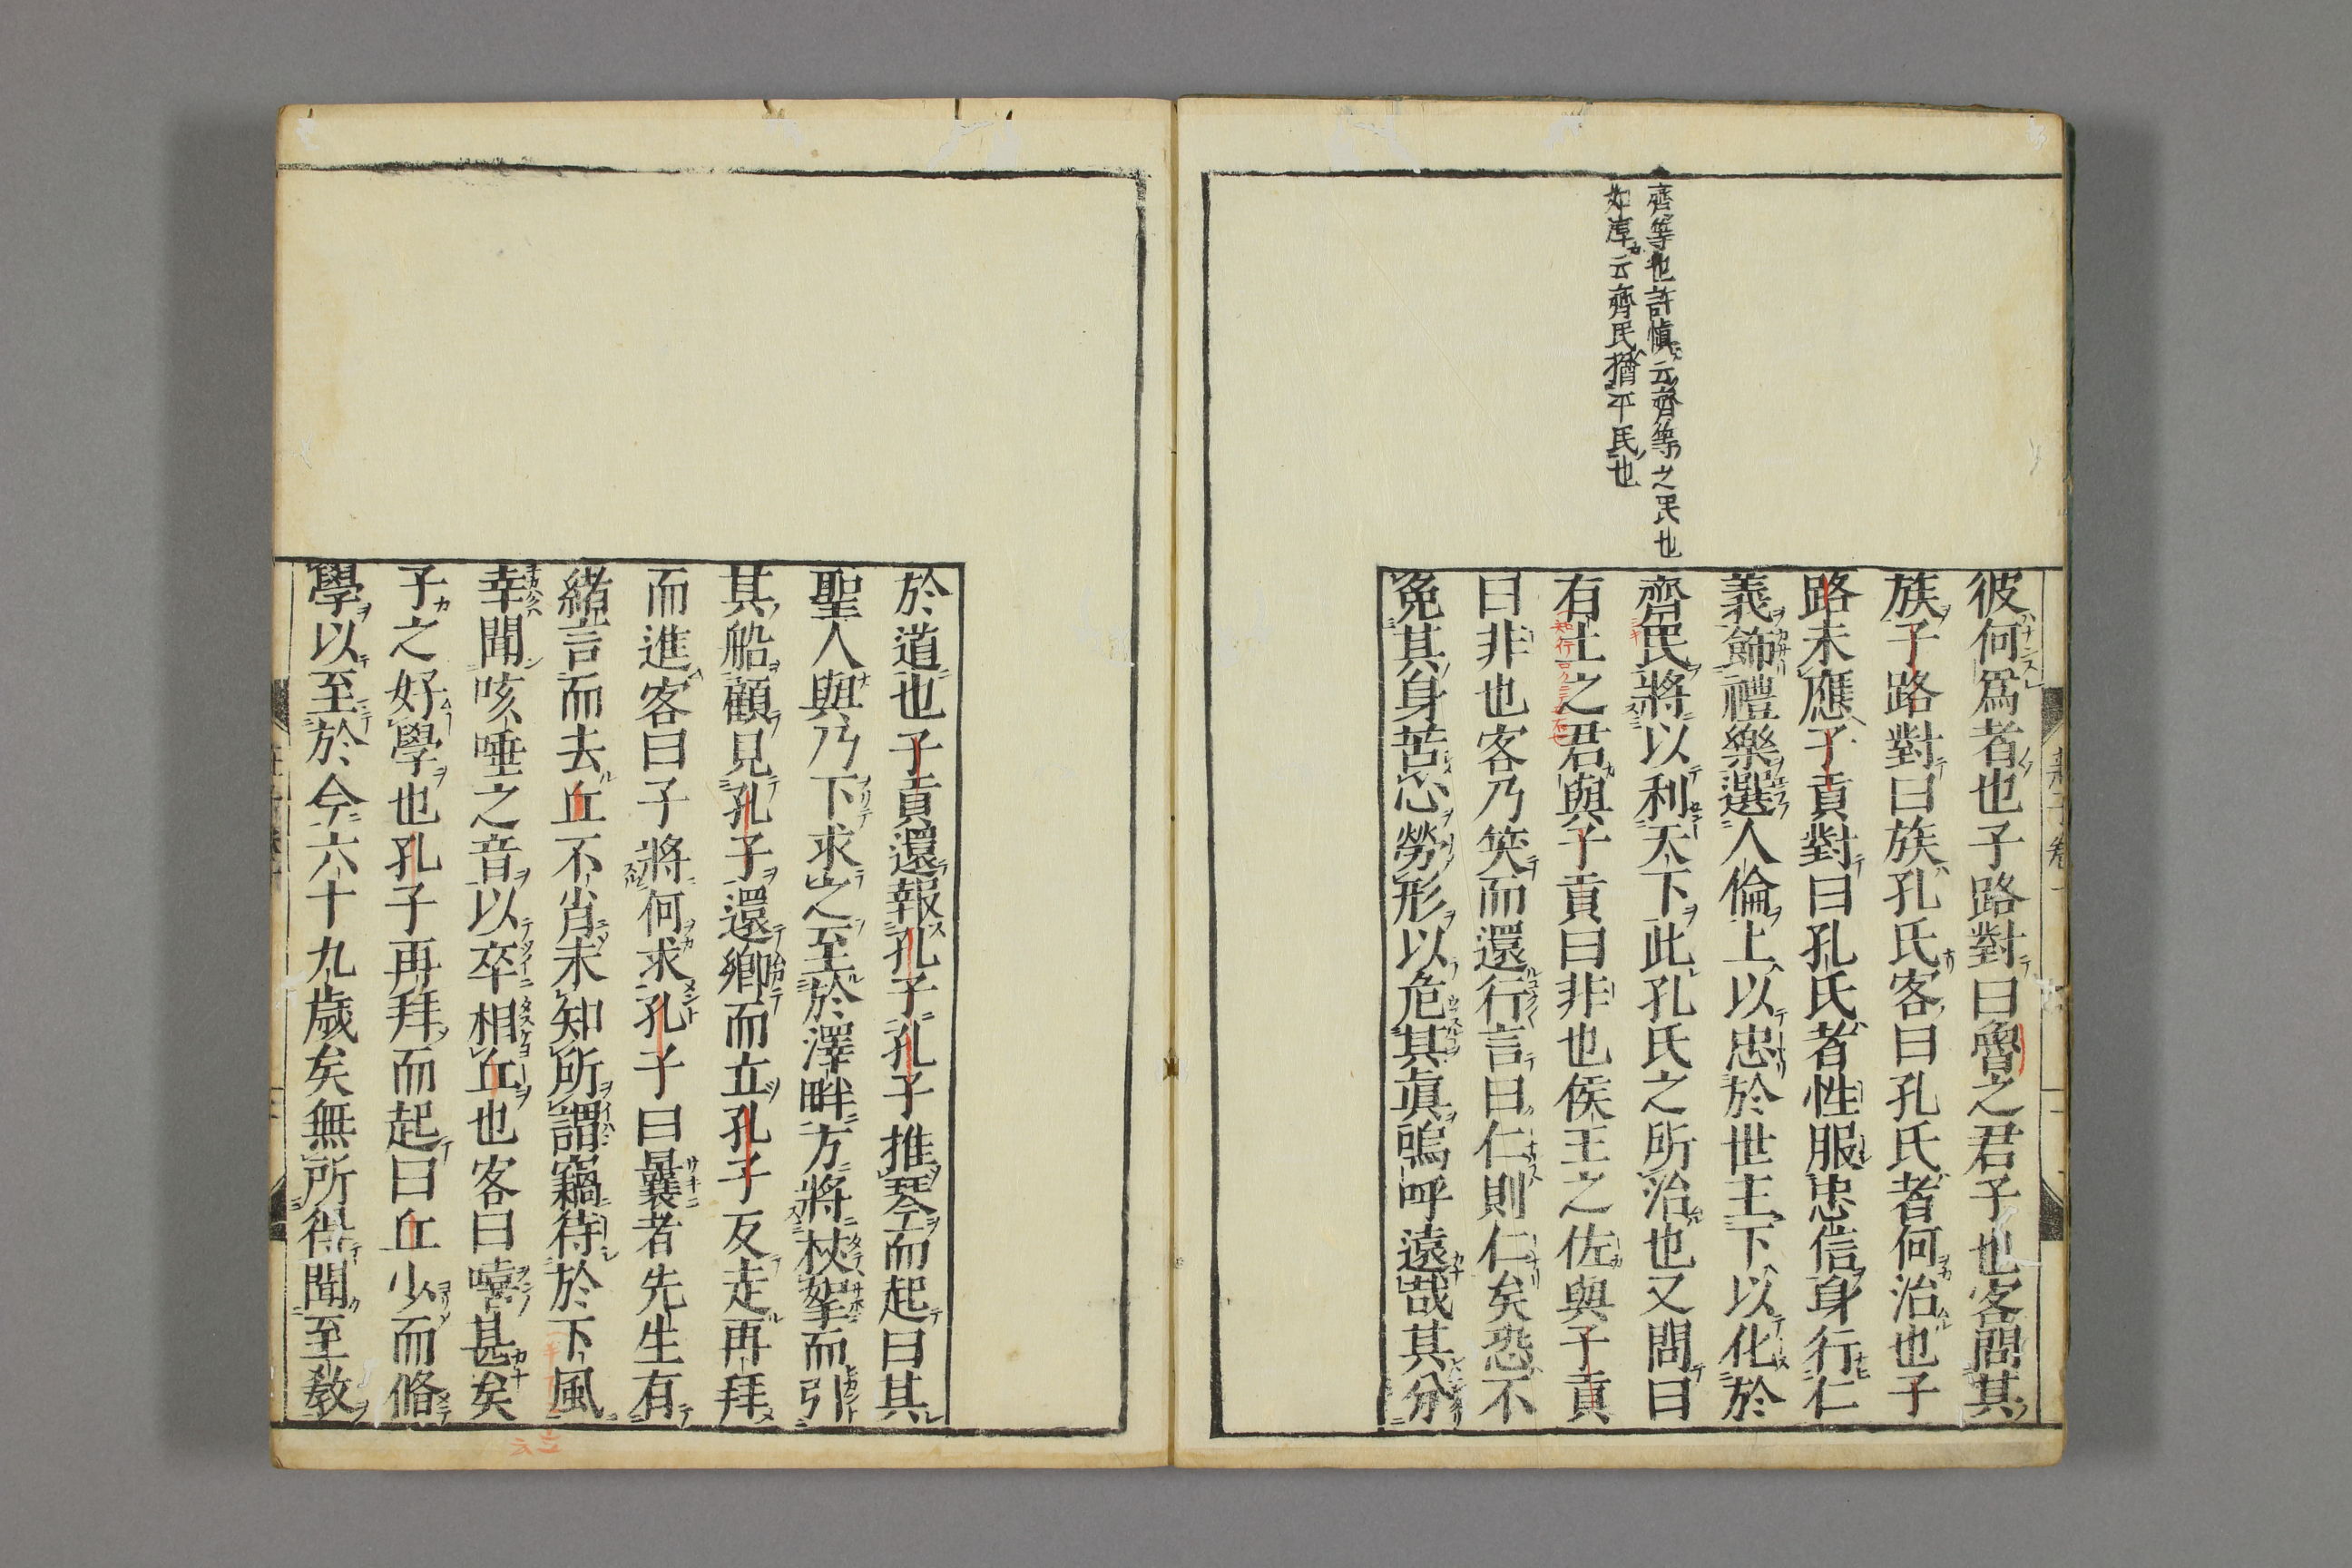 齊等也許愼云齊等之民也
如淳云齊民猶平民也
彼何爲者也子路對曰魯之君子也客問其
族子路對曰族孔氏客曰孔氏者何治也子
路未應子貢對曰孔氏者性服忠信身行仁
義飾禮樂選人倫上以忠於世主下以化於
齊民將以利天下此孔氏之所治也又問曰
有土之君與子貢曰非也侯王之佐與子貢
曰非也客乃笑而還行言曰仁則仁矣恐不
免其身苦心勞形以危其眞嗚呼遠哉其分
於道也子貢還報孔子孔子推琴而起曰其
聖人與乃下求之至於澤畔方將杖拏而引
其船顧見孔子還鄉而立孔子反走再拜
而進客曰子將何求孔子曰曩者先生有
緒言而去丘不肖未知所謂竊待於下風
幸聞咳唾之音以卒相丘也客曰嘻甚矣
子之好學也孔子再拜而起曰丘少而脩
學以至於今六十九歲矣無所得聞至敎